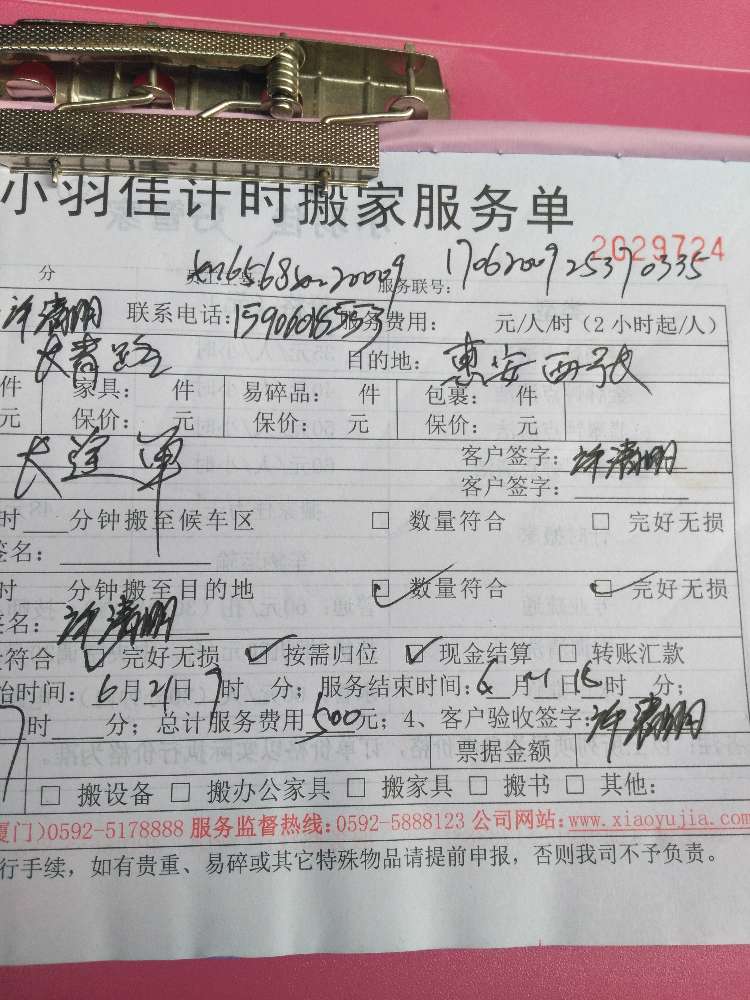 小羽佳计时搬家服务单
2029724
分 服务联号: 17062009 25370335
许清明 联系电话: 服务费用: 元/人/时(2小时起/人)
长青路 目的地: 惠安西
件 家具: 件 易碎品: 件 包裹: 件
元 保价: 元 保价: 元 保价: 元
长途单 客户签字: 许清明
客户签字:
时 分钟搬至候车区 □ 数量符合 □ 完好无损
签名:
时 分钟搬至目的地 ☑ 数量符合 ☑ 完好无损
签名: 许清明
符合 ☑ 完好无损 ☑ 按需归位 ☑ 现金结算 □ 转账汇款
始时间: 6月21日9时 分; 服务结束时间: 6月21日 时 分;
7时 分; 总计服务费用500元; 4、客户验收签字: 许清明
票据金额
□ 搬设备 □ 搬办公家具 □ 搬家具 □ 搬书 □ 其他:
厦门)0592-5178888 服务监督热线:0592-5888123 公司网站:www.xiaoyujia.com
行手续，如有贵重、易碎或其它特殊物品请提前申报，否则我司不予负责。